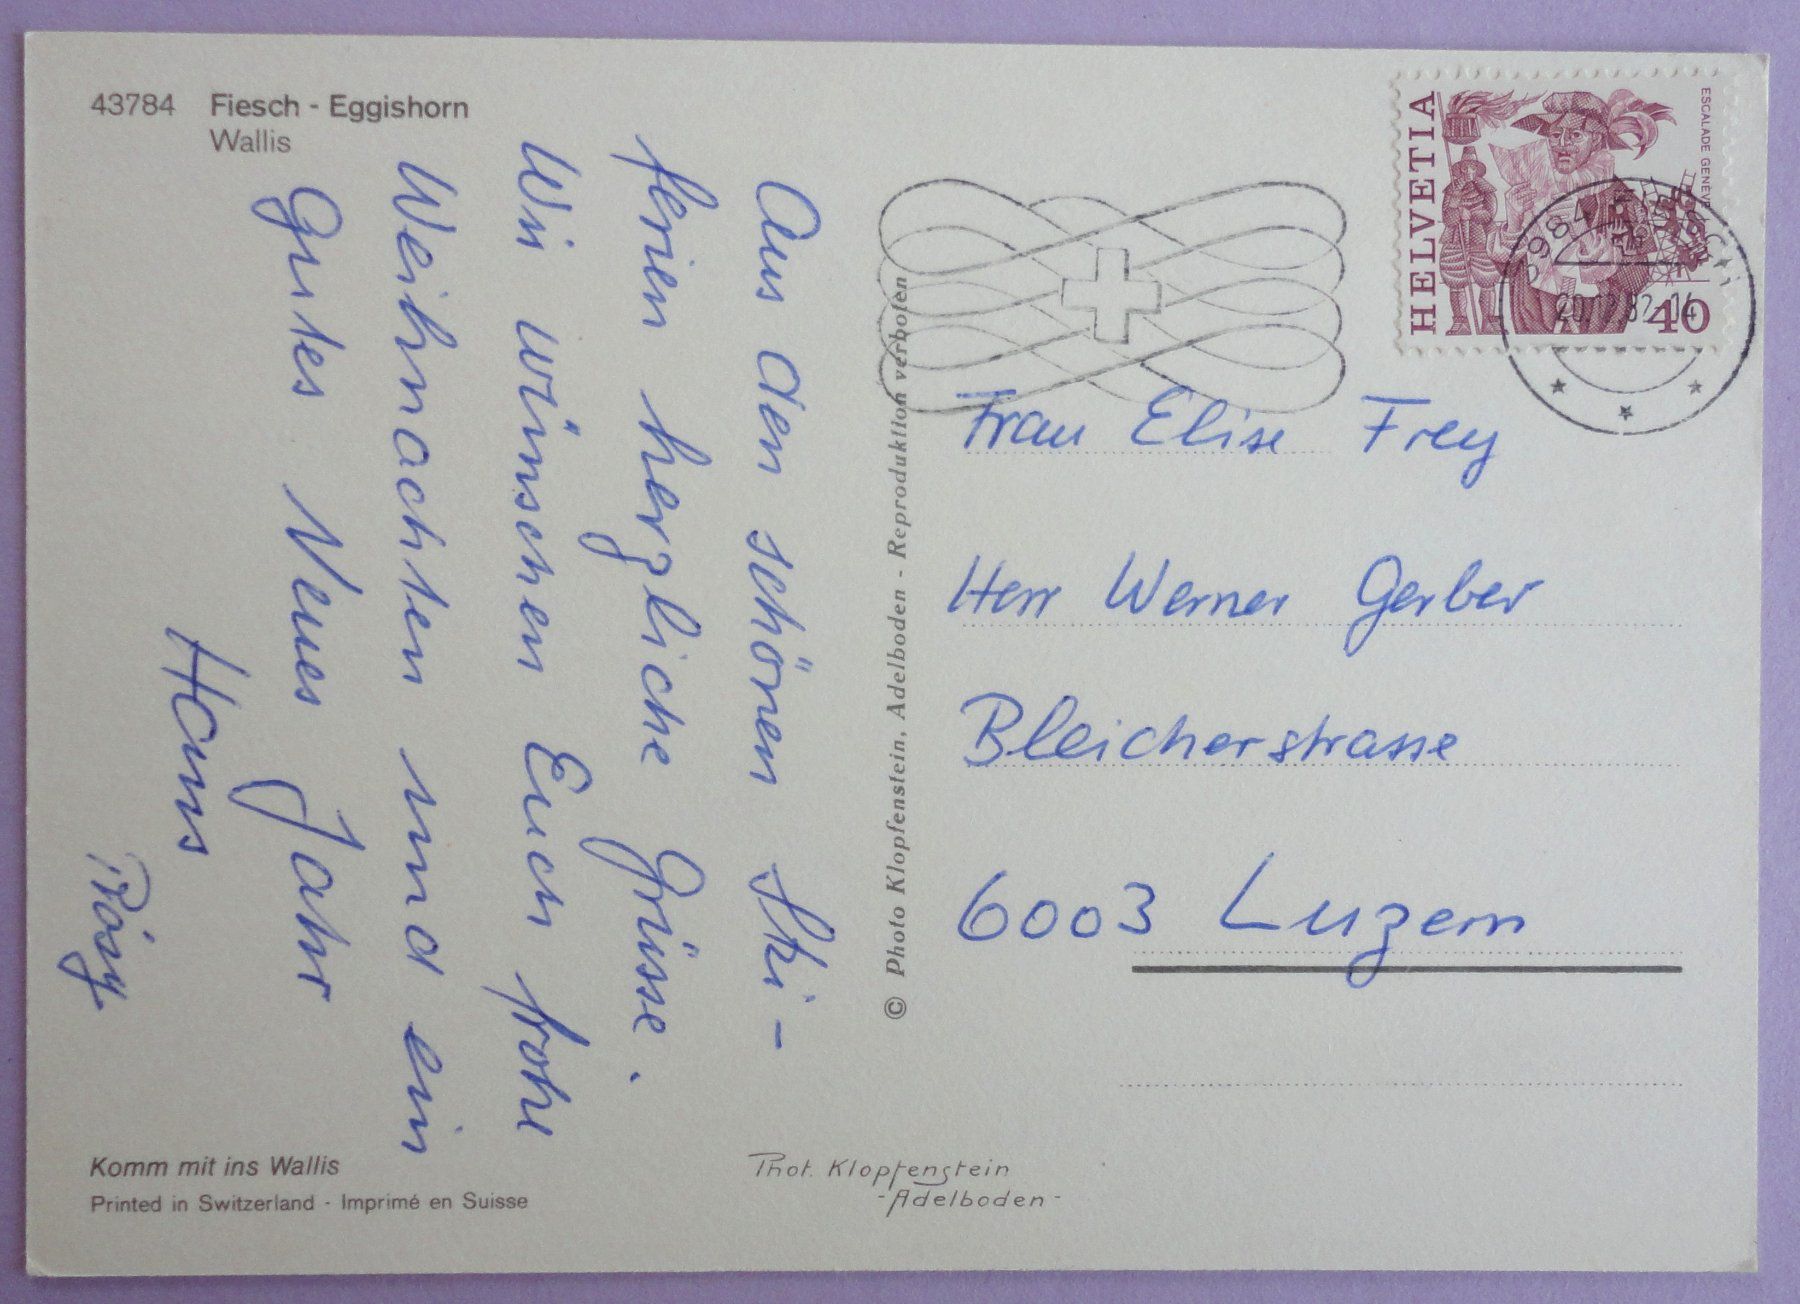 43784 Fiesch - Eggishorn
Wallis
Aus den schönen Ski-
ferien herzliche Grüsse.
Wir wünschen Euch frohe
Weihnachten und ein
Gutes Neues Jahr
Hans
Rösy
Komm mit ins Wallis
Printed in Switzerland - Imprimé en Suisse
© Photo Klopfenstein, Adelboden - Reproduktion verboten
Phot. Klopfenstein
-Adelboden-
HELVETIA
ESCALADE GENÈVE
40
3984 Fiesch
20.12.82-14
Frau Elise Frey
Herr Werner Gerber
Bleicherstrasse
6003 Luzern